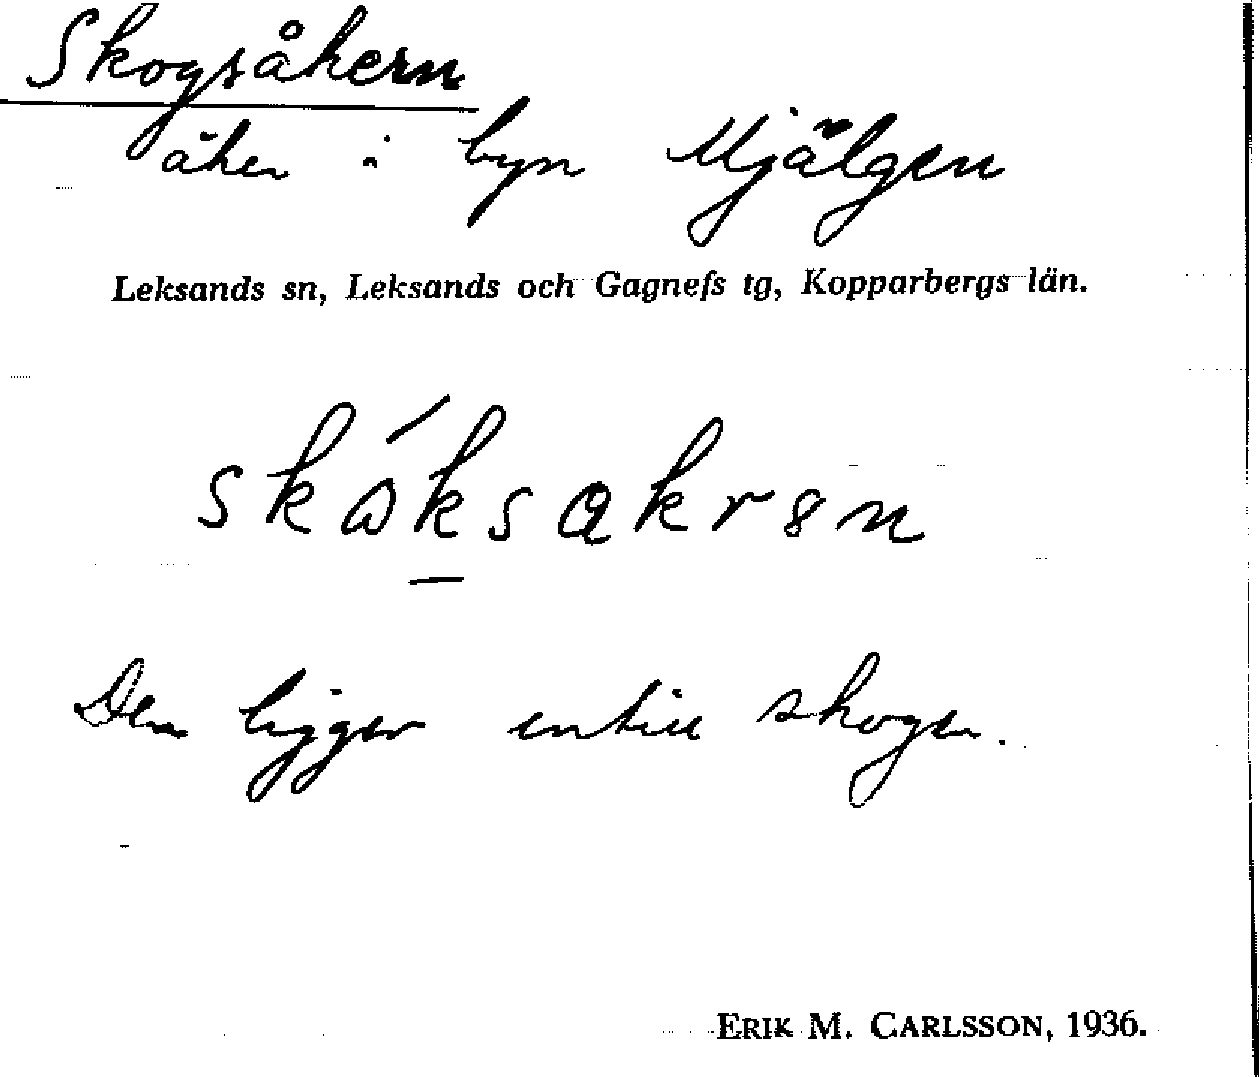 Skogsåkern
åker i byn Mjälgen
Leksands sn, Leksands och Gagnefs tg, Kopparbergs län.
Den ligger intill skogen.
ERIK M. CARLSSON, 1936.